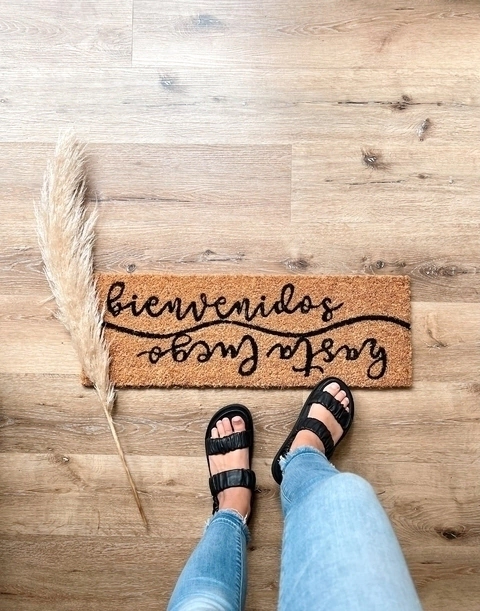 bienvenidos
hasta luego